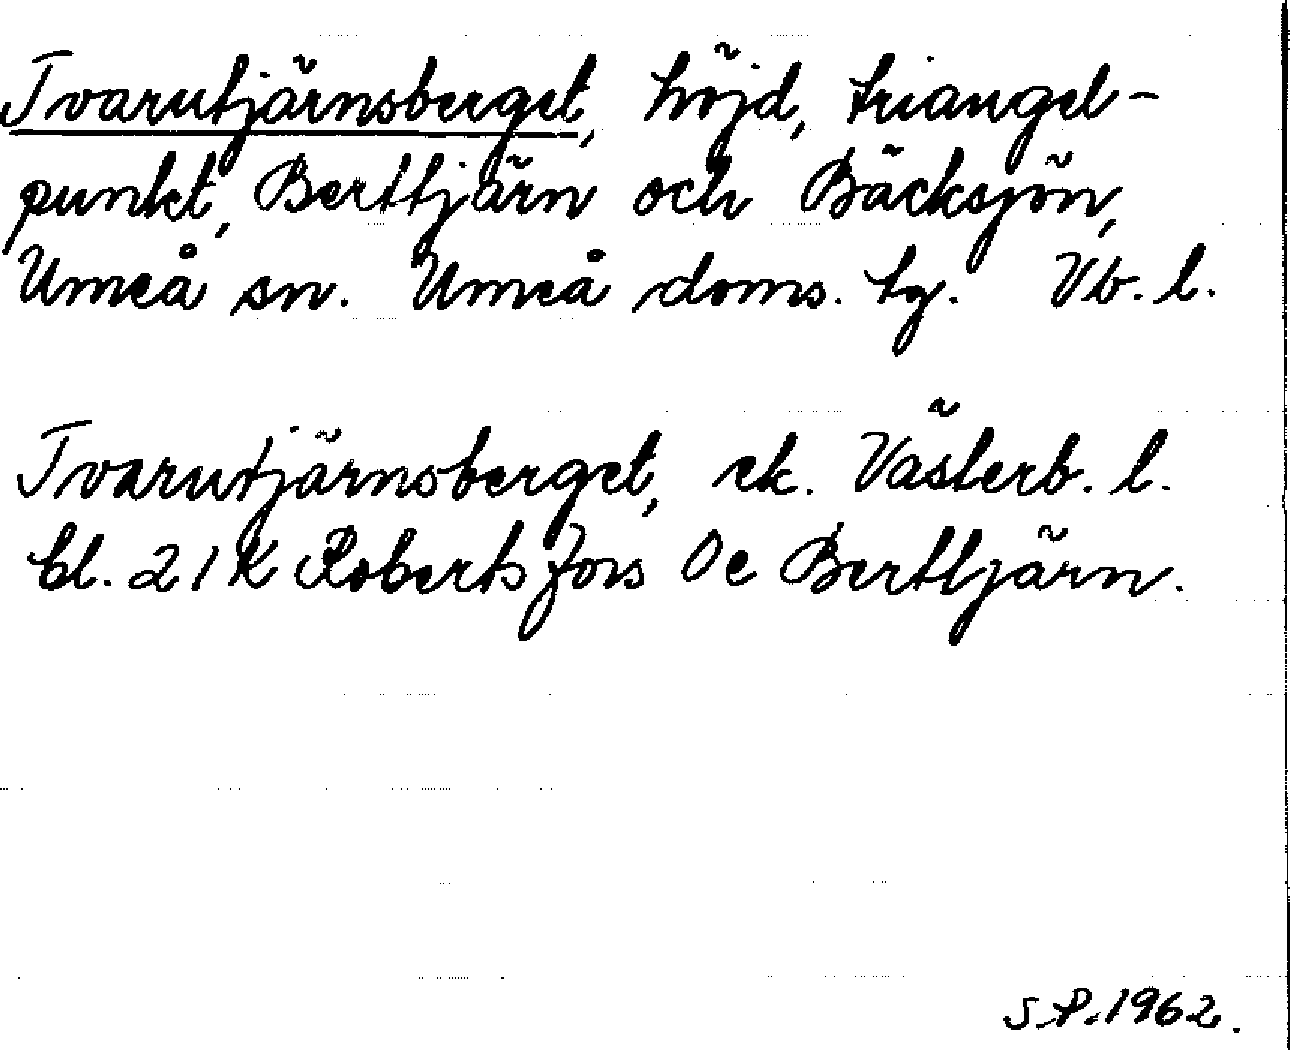 Tvarutjärnsberget, höjd, triangel-
punkt, Berttjärn och Bäcksjön,
Umeå sn. Umeå doms. tg. Vb. l.
Tvarutjärnsberget, ek. Västerb. l.
bl. 21K Robertsfors 0e Berttjärn.
S.P. 1962.